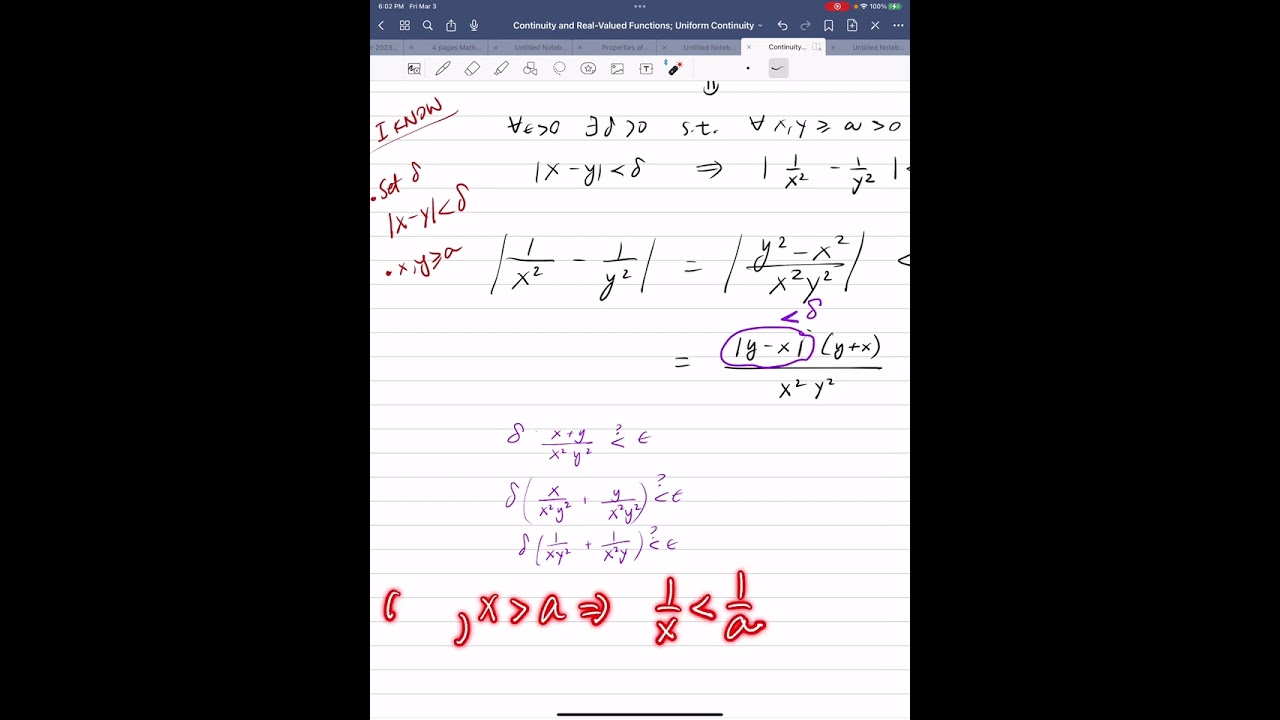 6:02 PM Fri Mar 3
100%
Continuity and Real-Valued Functions; Uniform Continuity
r 2023...
4 pages Math...
Untitled Noteb...
Properties of...
Untitled Noteb...
Continuity...
Untitled Noteb...
I KNOW
∀ϵ>0 ∃δ>0 s.t. ∀ x,y ≥ a >0
|x-y|<δ ⇒ | 1/x² - 1/y² | <
• set δ
|x-y|<δ
• x,y≥a
| 1/x² - 1/y² | = | (y² - x²)/(x²y²) | <
< δ
= |y-x| (y+x) / x² y²
δ · (x+y)/(x² y²) ?< ϵ
δ ( x/(x²y²) + y/(x²y²) ) ?< ϵ
δ ( 1/(xy²) + 1/(x²y) ) ?< ϵ
, x > a ⇒ 1/x < 1/a